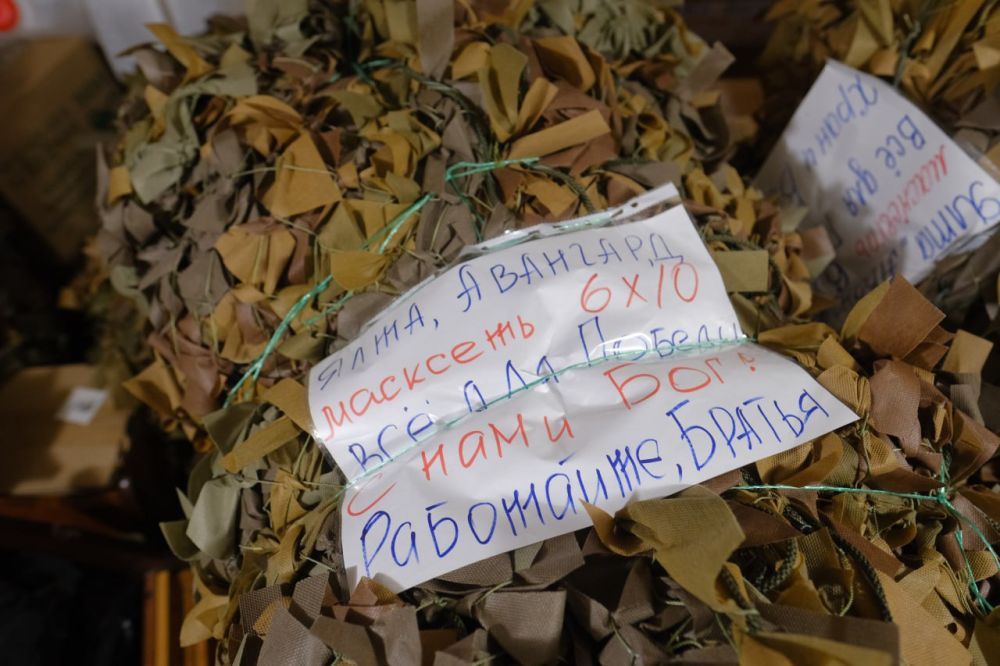 ЯЛТА, АВАНГАРД
масксеть 6х10
всё для Победы
С нами Бог!
Работайте, БРАТЬЯ
хран
Всё для
масксеть
Ялта